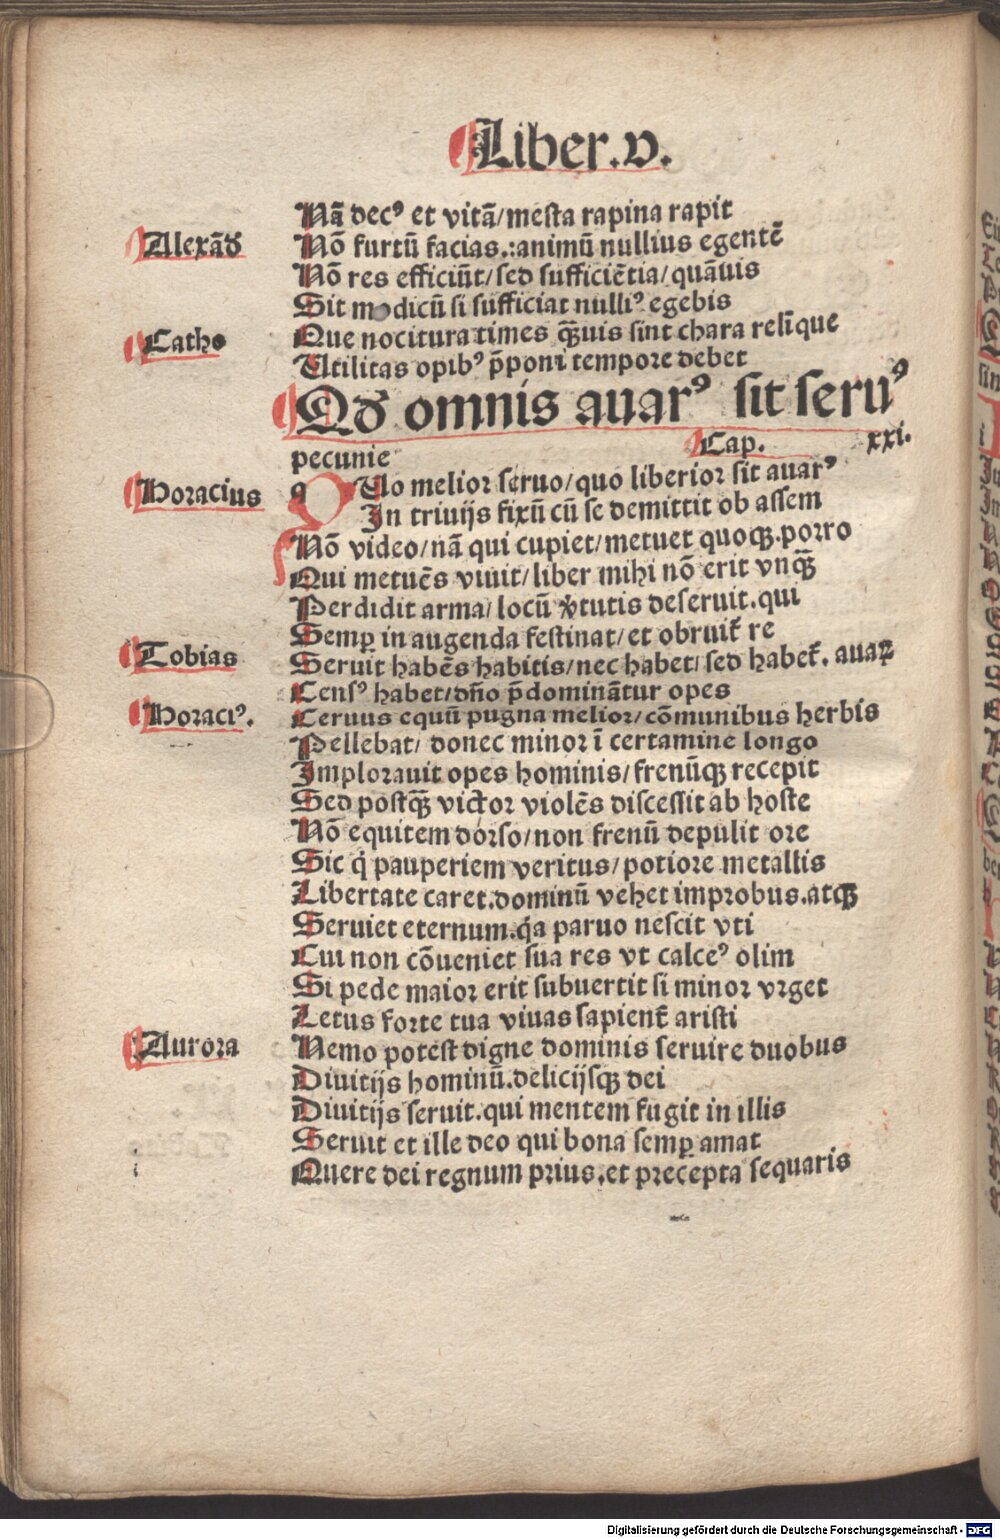 Liber.v.
Nā decꝰ et vitā/mesta rapina rapit
Alexāđ
Nō furtū facias.:animū nullius egentē
Nō res efficiūt/sed sufficiētia/quāuis
Sit modicū si sufficiat nulliꝰ egebis
Catho
Que nocitura times q̄uis sint chara relīque
Utilitas opibꝰ p̄poni tempore debet
Qđ omnis auarꝰ sit seruꝰ
pecunie Cap. xxi.
Horacius
qUo melior seruo/quo liberior sit auarꝰ
In triuijs fixū cū se demittit ob assem
Nō video/nā qui cupiet/metuet quoqꝫ.porro
Qui metuēs viuit/liber mihi nō erit vnq̄ꝫ
Perdidit arma/locū v̄tutis deseruit.qui
Semꝑ in augenda festinat/et obruit̄ re
Tobias
Seruit habēs habitis/nec habet/sed habet̄.auaꝝ
Censꝰ habet/dn̄o p̄dominātur opes
Horaciꝰ.
Ceruus equū pugna melior/cōmunibus herbis
Pellebat/donec minor ī certamine longo
Implorauit opes hominis/frenūqꝫ recepit
Sed postq̄ꝫ victor violēs discessit ab hoste
Nō equitem dorso/non frenū depulit ore
Sic q̇ pauperiem veritus/potiore metallis
Libertate caret.dominū vehet improbus.atqꝫ
Seruiet eternum.q̇a paruo nescit vti
Cui non cōueniet sua res vt calceꝰ olim
Si pede maior erit subuertit si minor vrget
Letus forte tua viuas sapient̄ aristi
Aurora
Nemo potest digne dominis seruire duobus
Diuitijs hominū.delicijsqꝫ dei
Diuitijs seruit.qui mentem fugit in illis
Seruit et ille deo qui bona semꝑ amat
Quere dei regnum prius.et precepta sequaris
Digitalisierung gefördert durch die Deutsche Forschungsgemeinschaft - DFG